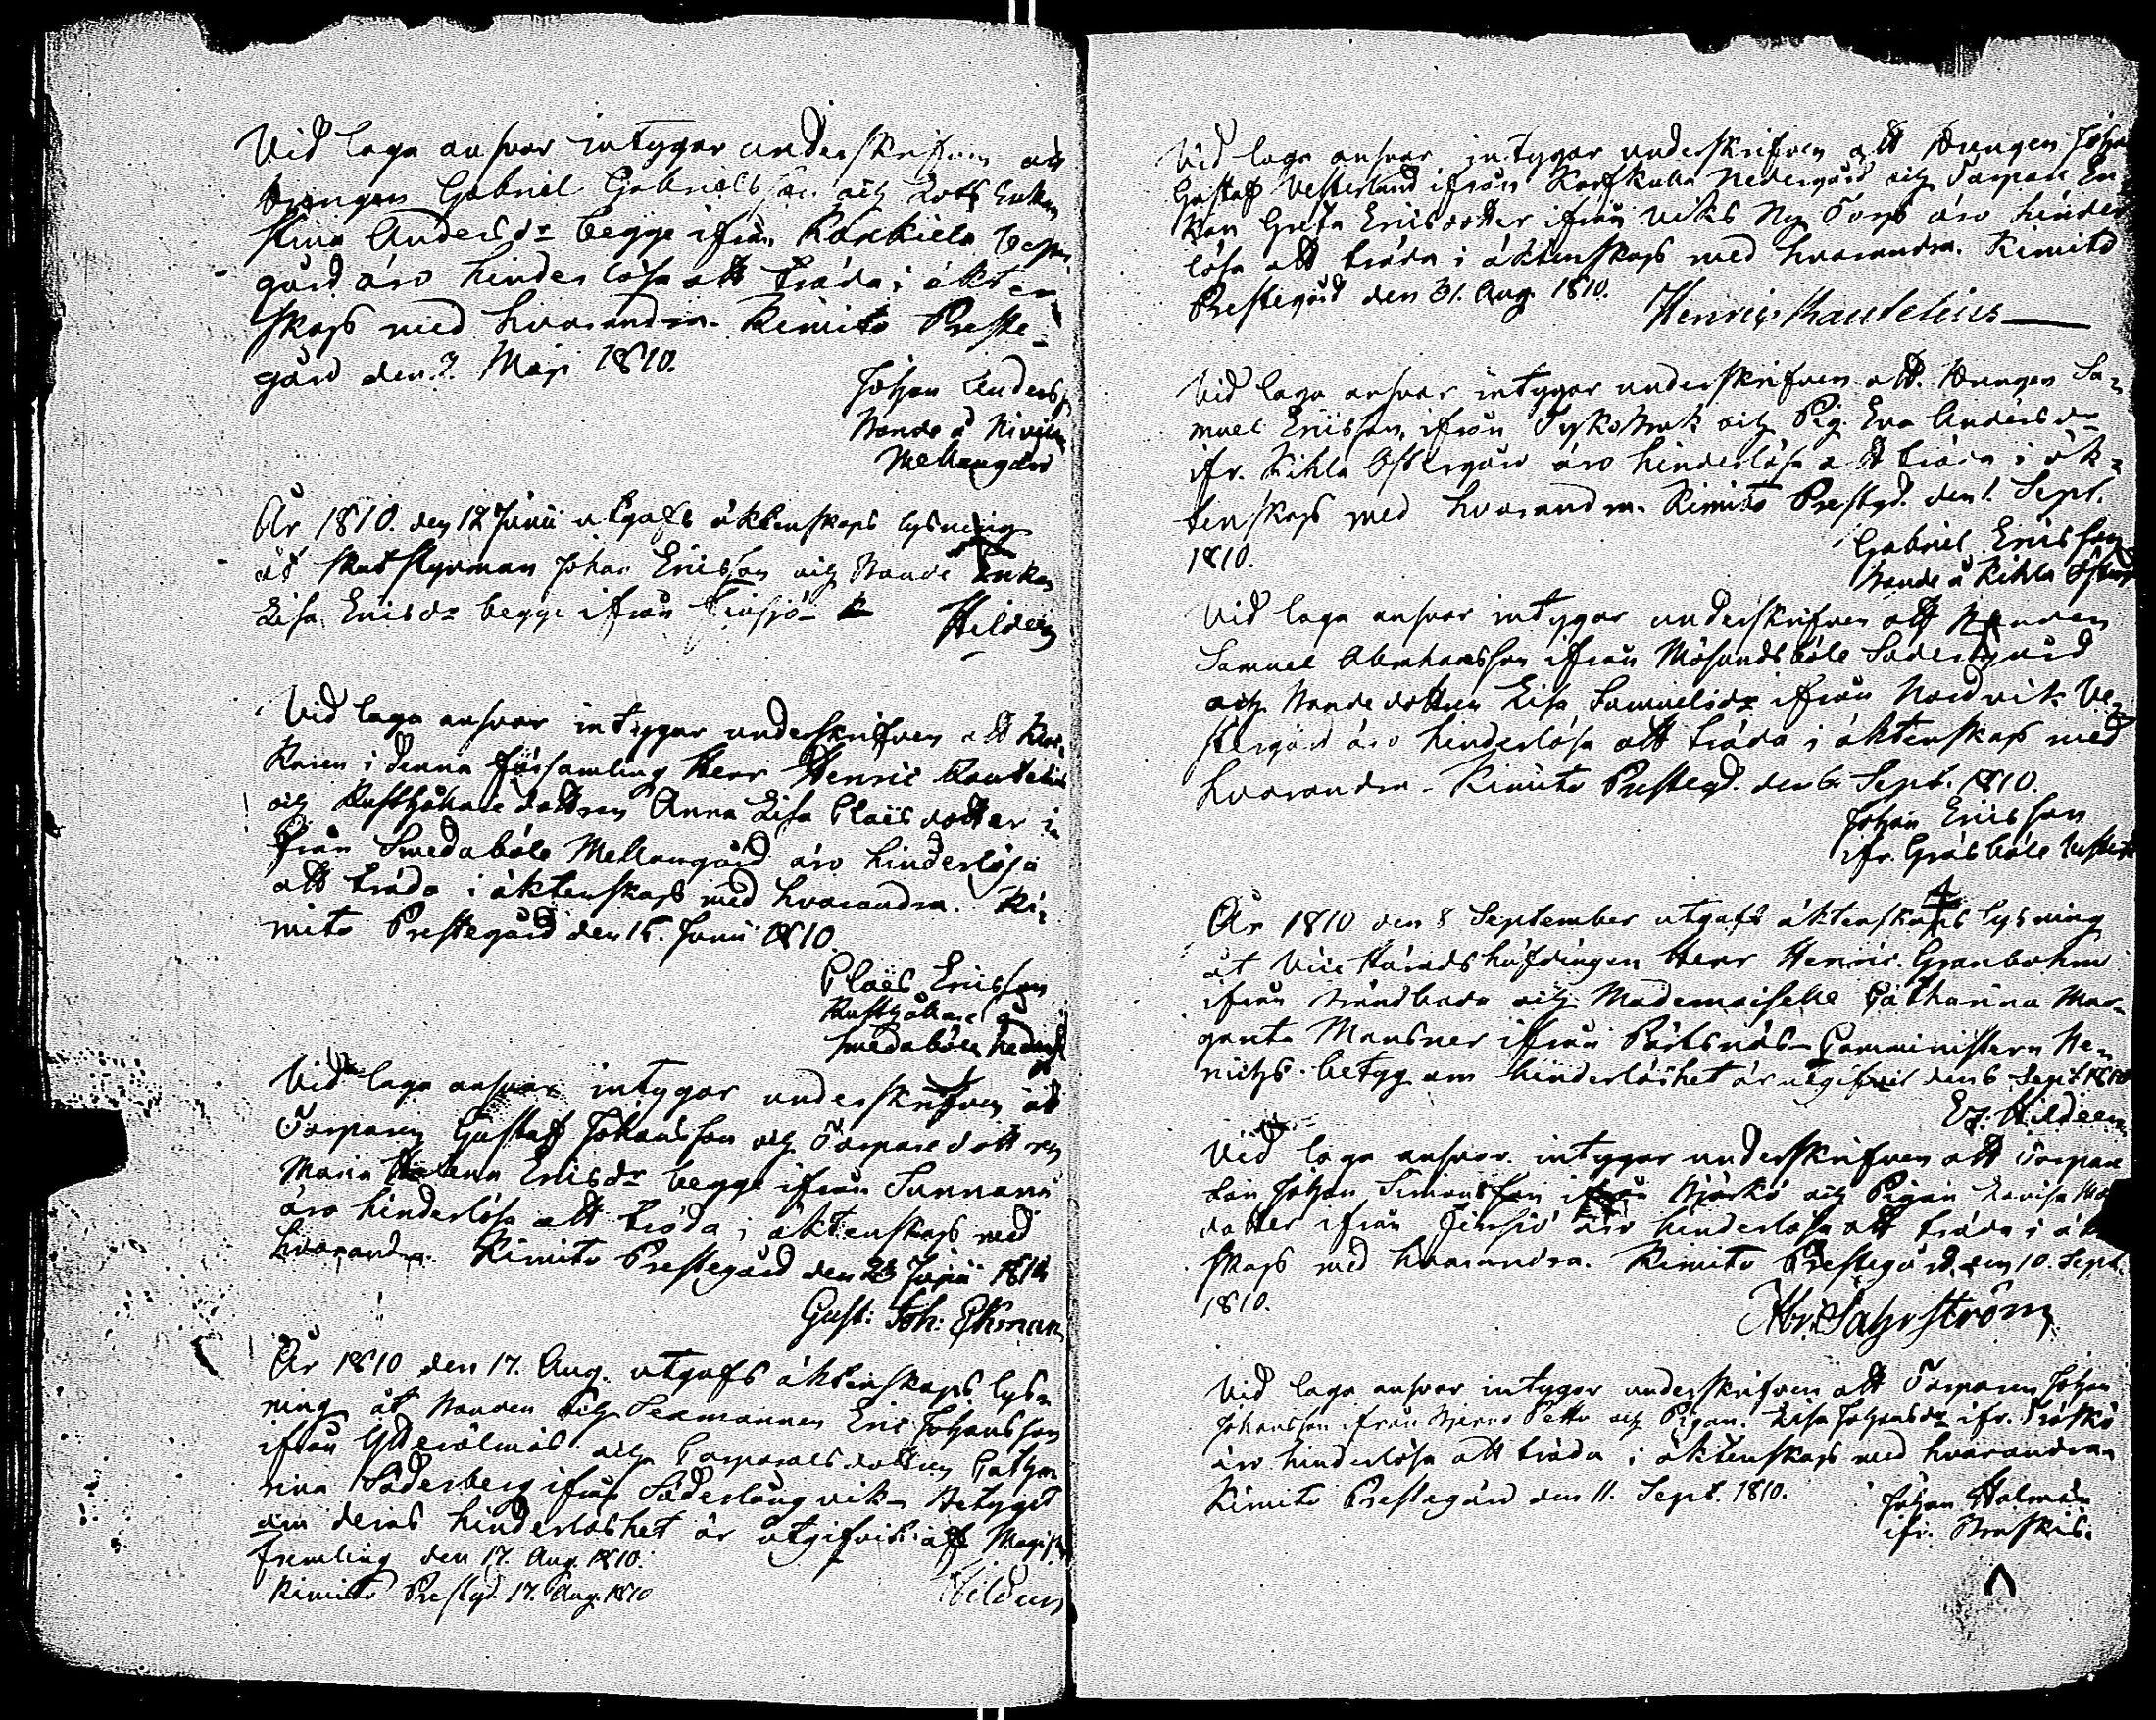 Vid laga answar intygar underskrifven att
drengen Gabriel Gabrielsson och Lots Enkan
Stina Andersdr begge ifrån Koskiela
gård äro hinderlösa att träda i äkten
skap med hvarandra. Kimito Preste-
gård den 2. Maji 1810.
Johan Anders
Bonde å
Mellangård
År 1810. den 12 Junii utgafs äktenskaps lysning
åt Skutstyrman Johan Ericsson och Bonde Enkan
Lisa Ericsdr begge ifrån Finsjö
Hildeen
Vid laga answar intygar underskrifven att Kloc-
karen i denna Församling Herr Henric Rautelius
och Rusthållaredottren Anna Lisa Claësdotter i
från Smedaböle Mellangård äro hinderlösa
att träda i äktenskap med hvarandra. Ki-
mito Prestegård den 15. Junii 1810.
Claës Ericsson
Rusthållare å
Smedaböle Nedergd
Vid laga answar intygar underskrifven att
Torparen Gustaff Johansson och Torparedottren
Maria Helena Ericsdr begge ifrån Sunnanå
äro hinderlösa att träda i äktenskap med
hvarandra. Kimito Prestegård den 23 Junii 1810
Gust: Joh: Ekman
År 1810 den 17. Aug. utgafs äktenskaps lys-
ning åt Bonden och Sexmannen Eric Johansson
ifrån Ytterölmos och Corporalsdottren Catha
rina Söderberg ifrån Söderlångvik. Betyget
om deras hinderlöshet är utgifvit aff Magist
Fremling den 17. Aug. 1810.
Kimito Prestgd. 17. Aug. 1810
Hildeen
Vid laga answar intygar underskrifven att Drengen Johan
Gustaff Vesterlund ifrån Korfkulla Nedergård och Torpare En-
kan Greta Ericsdotter ifrån Viks Ny Torp äro hinder
lösa att träda i äktenskap med hvarandra. Kimito
Prestegård den 31. Aug. 1810.
Henric Rautelius
Vid laga answar intygar underskrifven att Drengen Sa-
muel Ericsson, ifrån Tykobruk och Pig. Eva Andersdr
ifr. Kihla Östergård äro hinderlösa att träda i äk-
tenskap med hvarandra. Kimito Prestgd. den 1. Sept.
1810.
Gabriel Ericsson
Bonde å Kihla Österg
Vid laga answar intygar underskrifven att Bonden
Samuel Abrahamsson ifrån Mösundsböle Södergård
och Bondedottren Lisa Samuelsdr ifrån Nordvik Ve-
stergård äro hinderlösa att träda i äktenskap med
hvarandra. Kimito Prestegd. den 6 Sept. 1810.
Johan Ericsson
ifr. Gräsböle
År 1810 den 8 September utgafs äktenskaps lysning
åt Vice Häradshöfdingen Herr Henric Granbohm
ifrån Strandbada och Mademoiselle Catharina Mar-
gareta Mansner ifrån Pärtsnäs. Comministern
betyg om hinderlöshet är utgifvit den 6 Sept 1810
Ez. Hildeen
Vid laga answar intygar underskrifven att Torpare
Son Johan Simonsson ifrån Björkö och Pigan Lovisa
dotter ifrån Finsjö äro hinderlösa att träda i äk
skap med hvarandra. Kimito Prestegård den 10. Sept.
1810.
Abr: Sahrström
Vid laga answar intygar underskrifven att Torparen Johan
Johansson ifrån Bjerno Petto och Pigan Lisa Johansdr ifr. Träskö
äro hinderlösa att träda i äktenskap med hvarandra
Kimito Prestegård den 11. Sept. 1810.
Johan Holmén
ifr. Branskis.